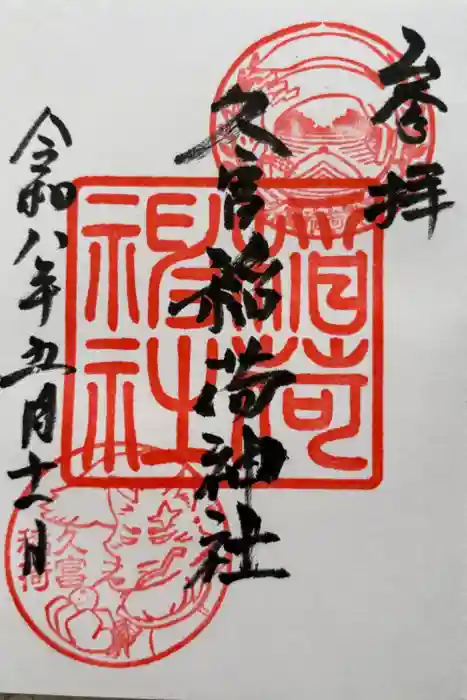 参拝
久富稲荷神社
令和八年五月十一日
稲荷
神社
久富
稲荷